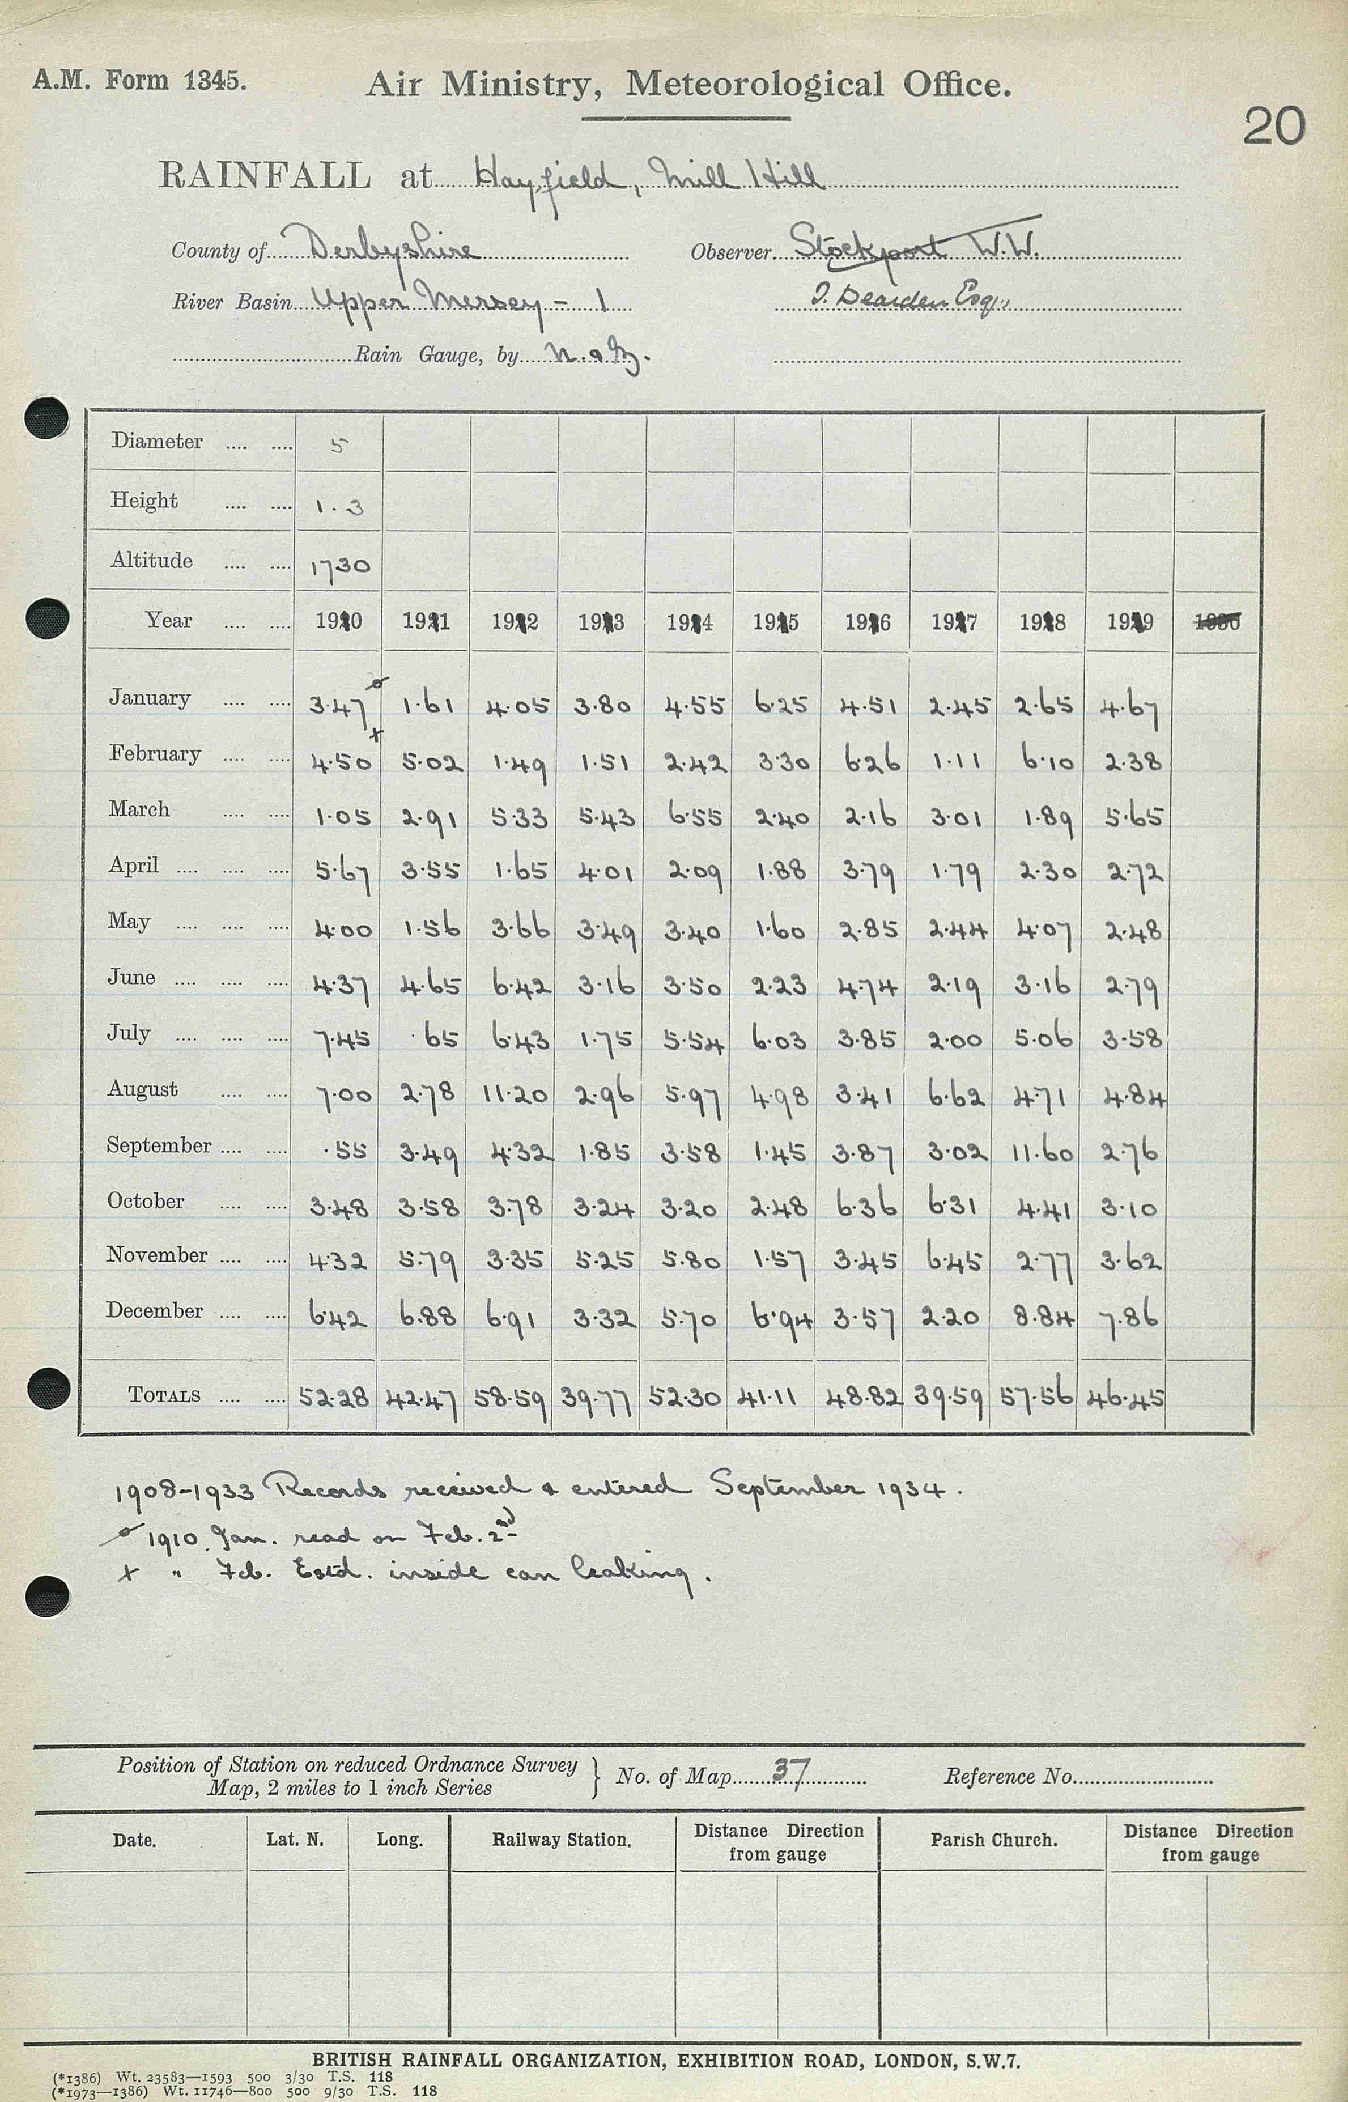 A.M. Form 1345.
Air Ministry, Meteorological Office.
20
RAINFALL at Hayfield, Mill Hill
County of Derbyshire Observer. Stockport W.W.
River Basin Upper Mersey - 1 J. Dearden Esq.,
Rain Gauge, by N. & Z.
Diameter .... .... 5
Height .... .... 1.3
Altitude .... .... 1730
Year .... .... 1910 1911 1912 1913 1914 1915 1916 1917 1918 1919 1930
January .... .... 3.47ø 1.61 4.05 3.80 4.55 6.25 4.51 2.45 2.65 4.67
February .... .... 4.50x 5.02 1.49 1.51 2.42 3.30 6.26 1.11 6.10 2.38
March .... .... 1.05 2.91 5.33 5.43 6.55 2.40 2.16 3.01 1.89 5.65
April .... .... .... 5.67 3.55 1.65 4.01 2.09 1.88 3.79 1.79 2.30 2.72
May .... .... .... 4.00 1.56 3.66 3.49 3.40 1.60 2.85 2.44 4.07 2.48
June .... .... .... 4.37 4.65 6.42 3.16 3.50 2.23 4.74 2.19 3.16 2.79
July .... .... .... 7.45 .65 6.43 1.75 5.54 6.03 3.85 2.00 5.06 3.58
August .... .... 7.00 2.78 11.20 2.96 5.97 4.98 3.41 6.62 4.71 4.84
September .... .... .55 3.49 4.32 1.85 3.58 1.45 3.87 3.02 11.60 2.76
October .... .... 3.48 3.58 3.78 3.24 3.20 2.48 6.36 6.31 4.41 3.10
November .... .... 4.32 5.79 3.35 5.25 5.80 1.57 3.45 6.45 2.77 3.62
December .... .... 6.42 6.88 6.91 3.32 5.70 6.94 3.57 2.20 8.84 7.86
TOTALS .... .... 52.28 42.47 58.59 39.77 52.30 41.11 48.82 39.59 57.56 46.45
1908-1933 Records received & entered September 1934.
ø 1910. Jan. read on Feb. 2nd
x " Feb. Estd. inside can leaking.
Position of Station on reduced Ordnance Survey
Map, 2 miles to 1 inch Series } No. of Map 37 Reference No.
Date. Lat. N. Long. Railway Station. Distance Direction from gauge Parish Church. Distance Direction from gauge
BRITISH RAINFALL ORGANIZATION, EXHIBITION ROAD, LONDON, S.W.7.
(*1386) Wt. 23583—1593 500 3/30 T.S. 118
(*1973—1386) Wt. 11746—800 500 9/30 T.S. 118